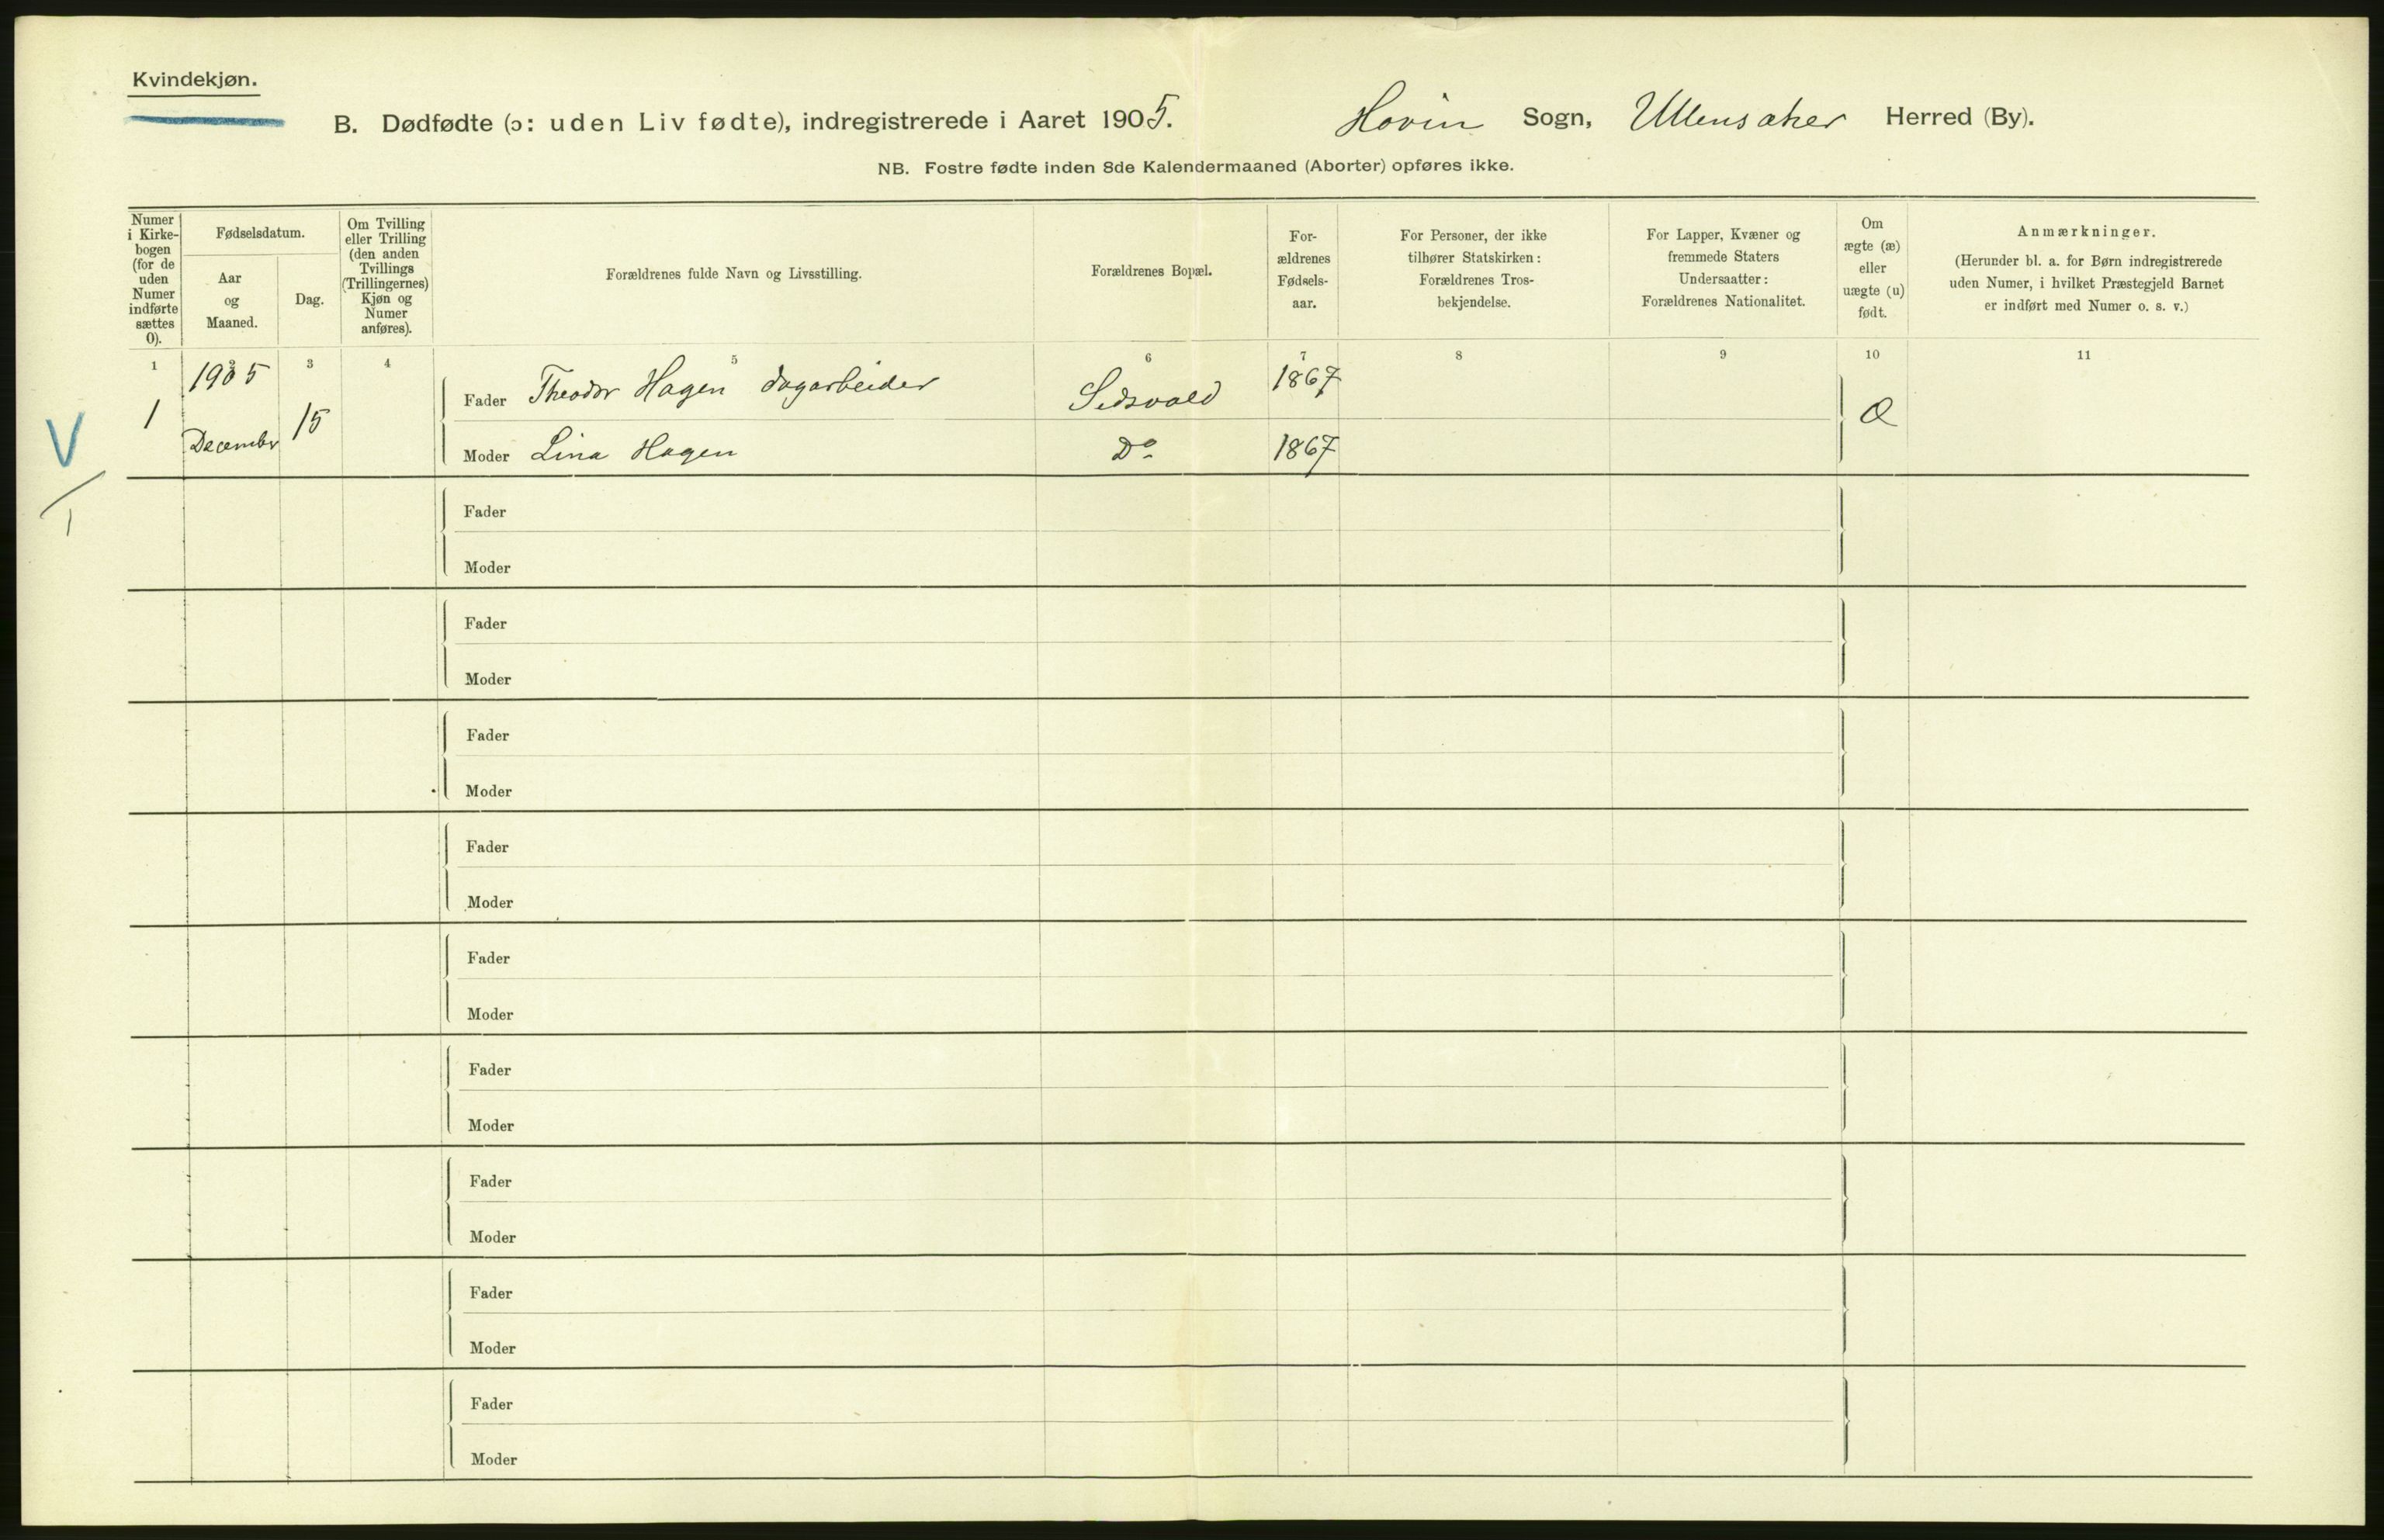 Kvindekjøn.
B. Dødfødte (ɔ: uden Liv fødte), indregistrerede i Aaret 1905. Hovin Sogn, Ullensaker Herred (By).
NB. Fostre fødte inden 8de Kalendermaaned (Aborter) opføres ikke.
Numer
i Kirke-
bogen
(for de
uden
Numer
indførte
sættes
0).
Fødselsdatum.
Aar
og
Maaned.
Dag.
Om Tvilling
eller Trilling
(den anden
Tvillings
(Trillingernes)
Kjøn og
Numer
anføres).
Forældrenes fulde Navn og Livsstilling.
Forældrenes Bopæl.
For-
ældrenes
Fødsels-
aar.
For Personer, der ikke
tilhører Statskirken:
Forældrenes Tros-
bekjendelse.
For Lapper, Kvæner og
fremmede Staters
Undersaatter:
Forældrenes Nationalitet.
Om
ægte (æ)
eller
uægte (u)
født.
Anmærkninger.
(Herunder bl. a. for Børn indregistrerede
uden Numer, i hvilket Præstegjeld Barnet
er indført med Numer o. s. v.)
1 2 3 4 5 6 7 8 9 10 11
1905
1 December 15
Fader Theodor Hagen dagarbeider 1867
Moder Lina Hagen Do 1867
æ
V
1
Fader
Moder
Fader
Moder
Fader
Moder
Fader
Moder
Fader
Moder
Fader
Moder
Fader
Moder
Fader
Moder
Fader
Moder